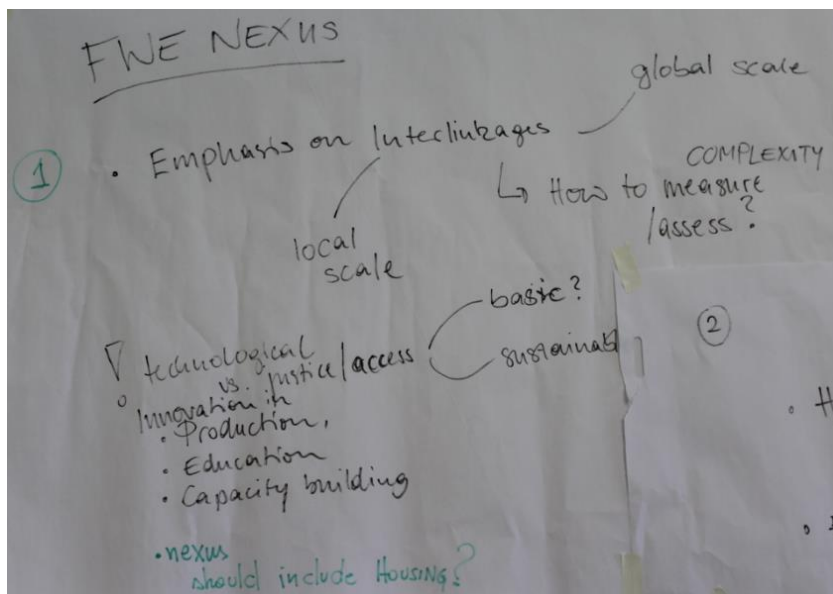 FWE NEXUS
global scale
1
• Emphasis on Interlinkages
COMPLEXITY
↳ How to measure
/assess?
local
scale
basic?
2
technological
vs. justice/access
sustainab
Innovation in
• Production,
• Education
• Capacity building
• H
• nexus
should include HOUSING?